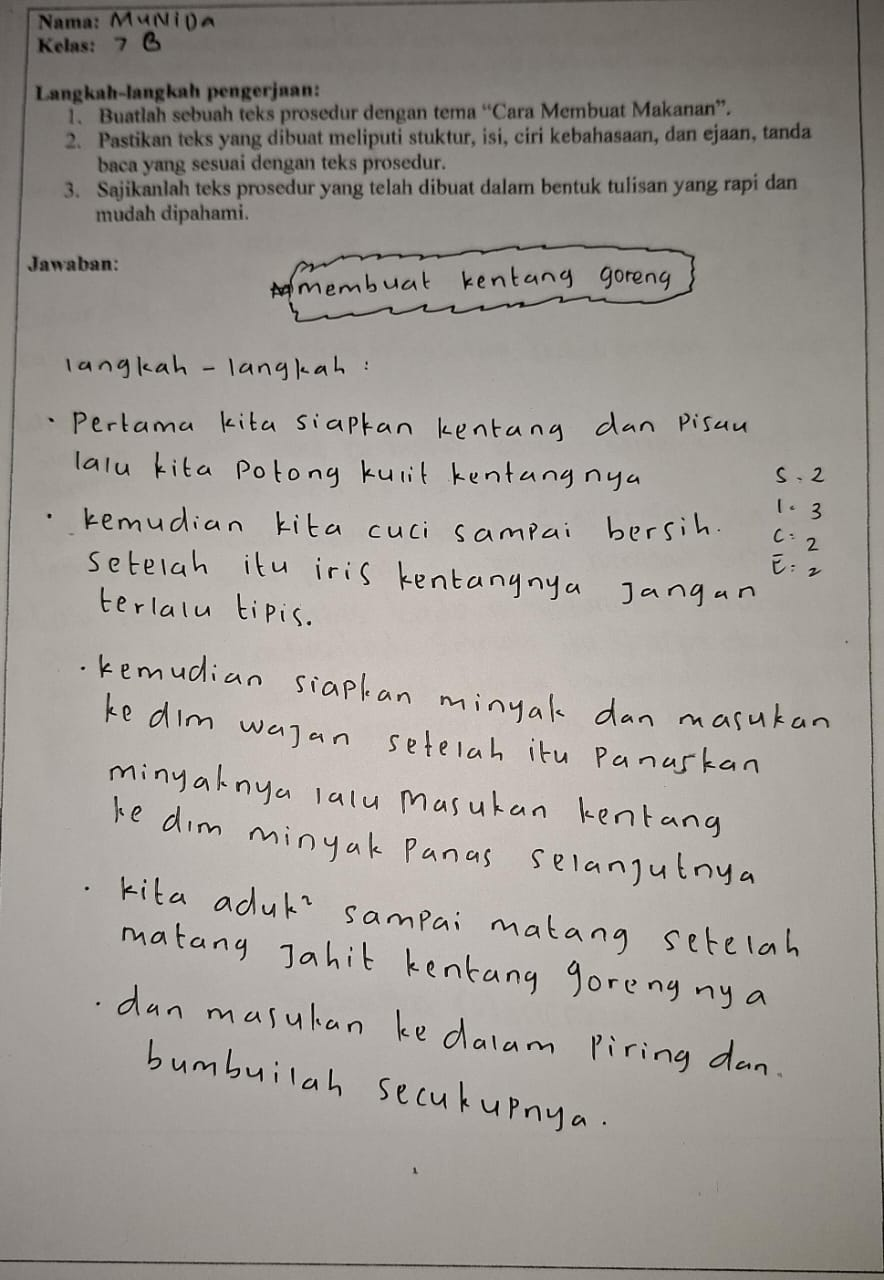 Nama: MUNIDA
Kelas: 7 B
Langkah-langkah pengerjaan:
1. Buatlah sebuah teks prosedur dengan tema “Cara Membuat Makanan”.
2. Pastikan teks yang dibuat meliputi stuktur, isi, ciri kebahasaan, dan ejaan, tanda
baca yang sesuai dengan teks prosedur.
3. Sajikanlah teks prosedur yang telah dibuat dalam bentuk tulisan yang rapi dan
mudah dipahami.
Jawaban:
membuat kentang goreng
langkah - langkah :
• Pertama kita siapkan kentang dan Pisau
lalu kita Potong kulit kentangnya
• kemudian kita cuci sampai bersih.
setelah itu iris kentangnya Jangan
terlalu tipis.
• kemudian siapkan minyak dan masukan
ke dlm wajan setelah itu Panaskan
minyaknya lalu Masukan kentang
ke dlm minyak Panas selanjutnya
• kita aduk² sampai matang setelah
matang Jahit kentang gorengnya
• dan masukan ke dalam Piring dan.
bumbuilah secukupnya.
S. 2
I. 3
C: 2
E: 2